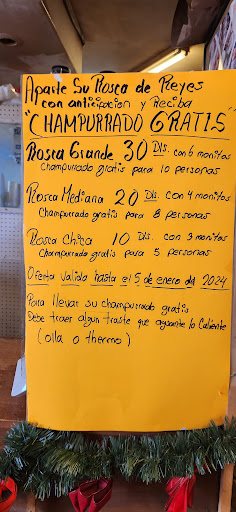 Aparte Su Rosca de Reyes
con anticipacion y Reciba
"CHAMPURRADO GRATIS"
Rosca Grande 30 Dls. con 6 monitos
Champurrado gratis para 10 personas
Rosca Mediana 20 Dls. con 4 monitos
Champurrado gratis para 8 personas
Rosca Chica 10 Dls. con 3 monitos
Champurrado gratis para 5 personas
Oferta valida hasta el 5 de enero del 2024
Para llevar su champurrado gratis
Debe traer algun traste que aguante lo Caliente
(olla o thermo)